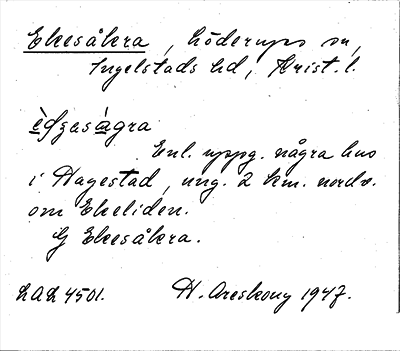 Ekesåkra, Löderups sn,
Ingelstads hd, Krist. l.
è̱gzasà̱gra
Enl. uppg. några hus
i Hagestad, ung. 2 km. nordv.
om Ekeliden.
Ekesåkra.
LAL 4501. H. Areskoug 1947.